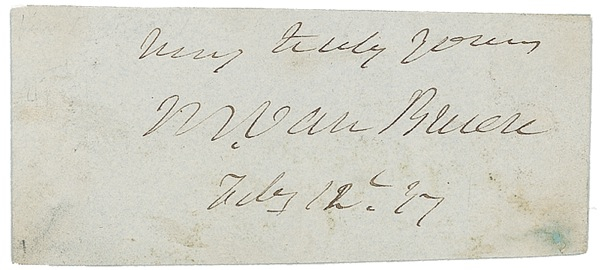 very truly yours
M. Van Buren
Feby 12th. 47